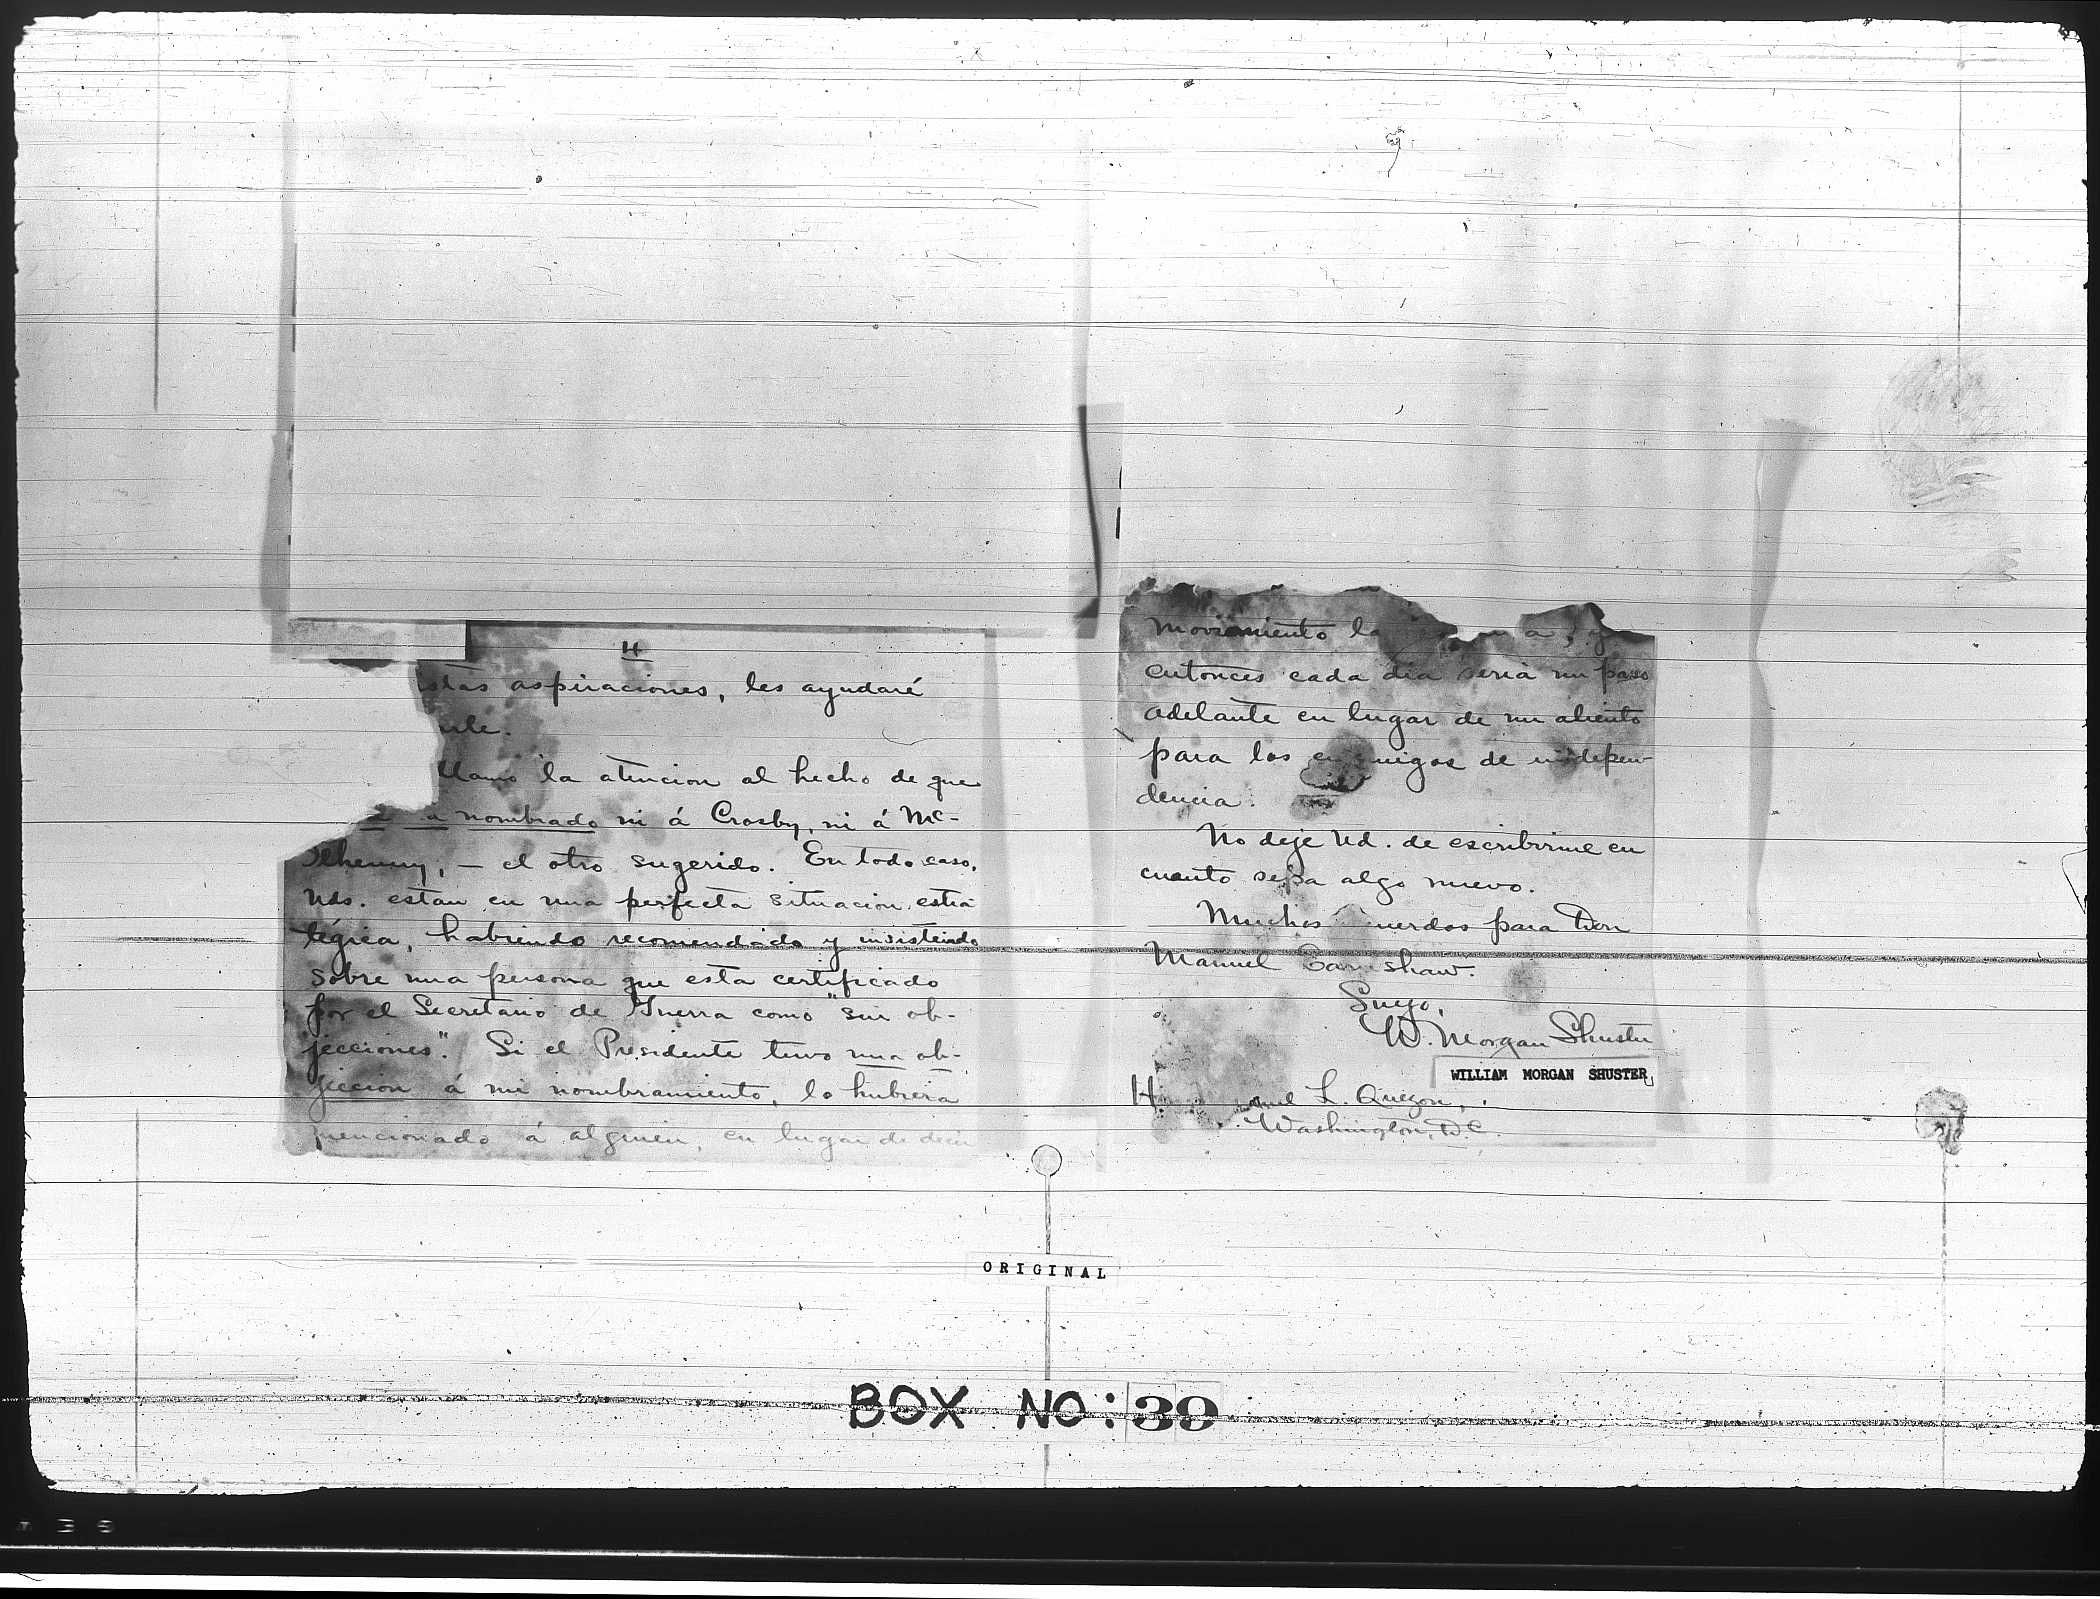 4
stas aspiraciones, les ayudaré
Llamo la atencion al hecho de que
nombrado ni á Crosby, ni á Mc-
Ilhenny, — el otro sugerido. En todo caso,
Uds. estan en una perfecta situacion estra
tégica, habiendo recomendado y insistiendo
sobre una persona que esta certificado
por el Secretario de Guerra como "sin ob-
jecciones". Si el Presidente tuvo una ob-
jeccion á mi nombramiento, lo hubiera
mencionado á alguien, en lugar de decir
movimiento
entonces cada dia seria un paso
adelante en lugar de un aliento
para los enemigos de indepen-
dencia.
No deje Ud. de escribirme en
cuanto sepa algo nuevo.
Muchos para Don
Manuel Earnshaw.
Suyo,
W. Morgan Shuster
WILLIAM MORGAN SHUSTER
L. Quezon,
Washington, D.C.
ORIGINAL
BOX NO: 39